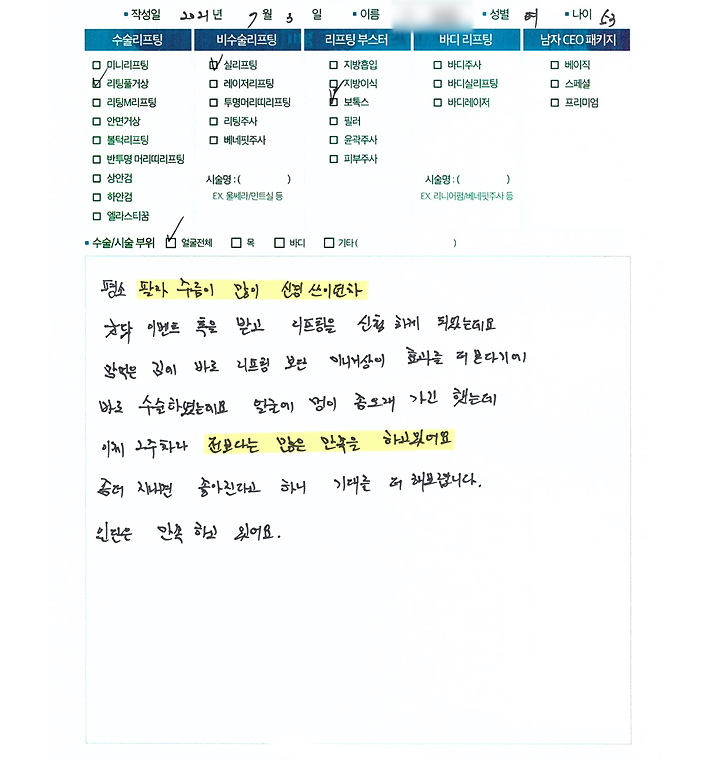 ▪ 작성일 2021년 7월 3일 ▪ 이름 ▪ 성별 여 ▪ 나이 53
수술리프팅 비수술리프팅 리프팅 부스터 바디 리프팅 남자 CEO 패키지
□ 미니리프팅 ☑ 실리프팅 □ 지방흡입 □ 바디주사 □ 베이직
☑ 리팅풀거상 □ 레이저리프팅 □ 지방이식 □ 바디실리프팅 □ 스페셜
□ 리팅M리프팅 □ 투명머리띠리프팅 ☑ 보톡스 □ 바디레이저 □ 프리미엄
□ 안면거상 □ 리팅주사 □ 필러
□ 볼턱리프팅 □ 베네핏주사 □ 윤곽주사
□ 반투명 머리띠리프팅 □ 피부주사
□ 상안검 시술명 : ( ) 시술명 : ( )
□ 하안검 EX. 울쎄라/민트실 등 EX. 리니어펌/베네핏주사 등
□ 엘라스티꿈
▪ 수술/시술 부위 ☑ 얼굴전체 □ 목 □ 바디 □ 기타 ( )
평소 팔자 주름이 많이 신경 쓰이던차
이벤트 톡을 받고 리프팅을 신청 하게 되었는데요
맘먹은 김에 바로 리프팅 보단 미니거상이 효과를 더 본다기에
바로 수술하였는데요 얼굴에 멍이 좀오래 가긴 했는데
이제 2주차라 전보다는 많은 만족을 하고있어요
좀더 지나면 좋아진다고 하니 기대를 더 해보랍니다.
일단은 만족 하고 있어요.